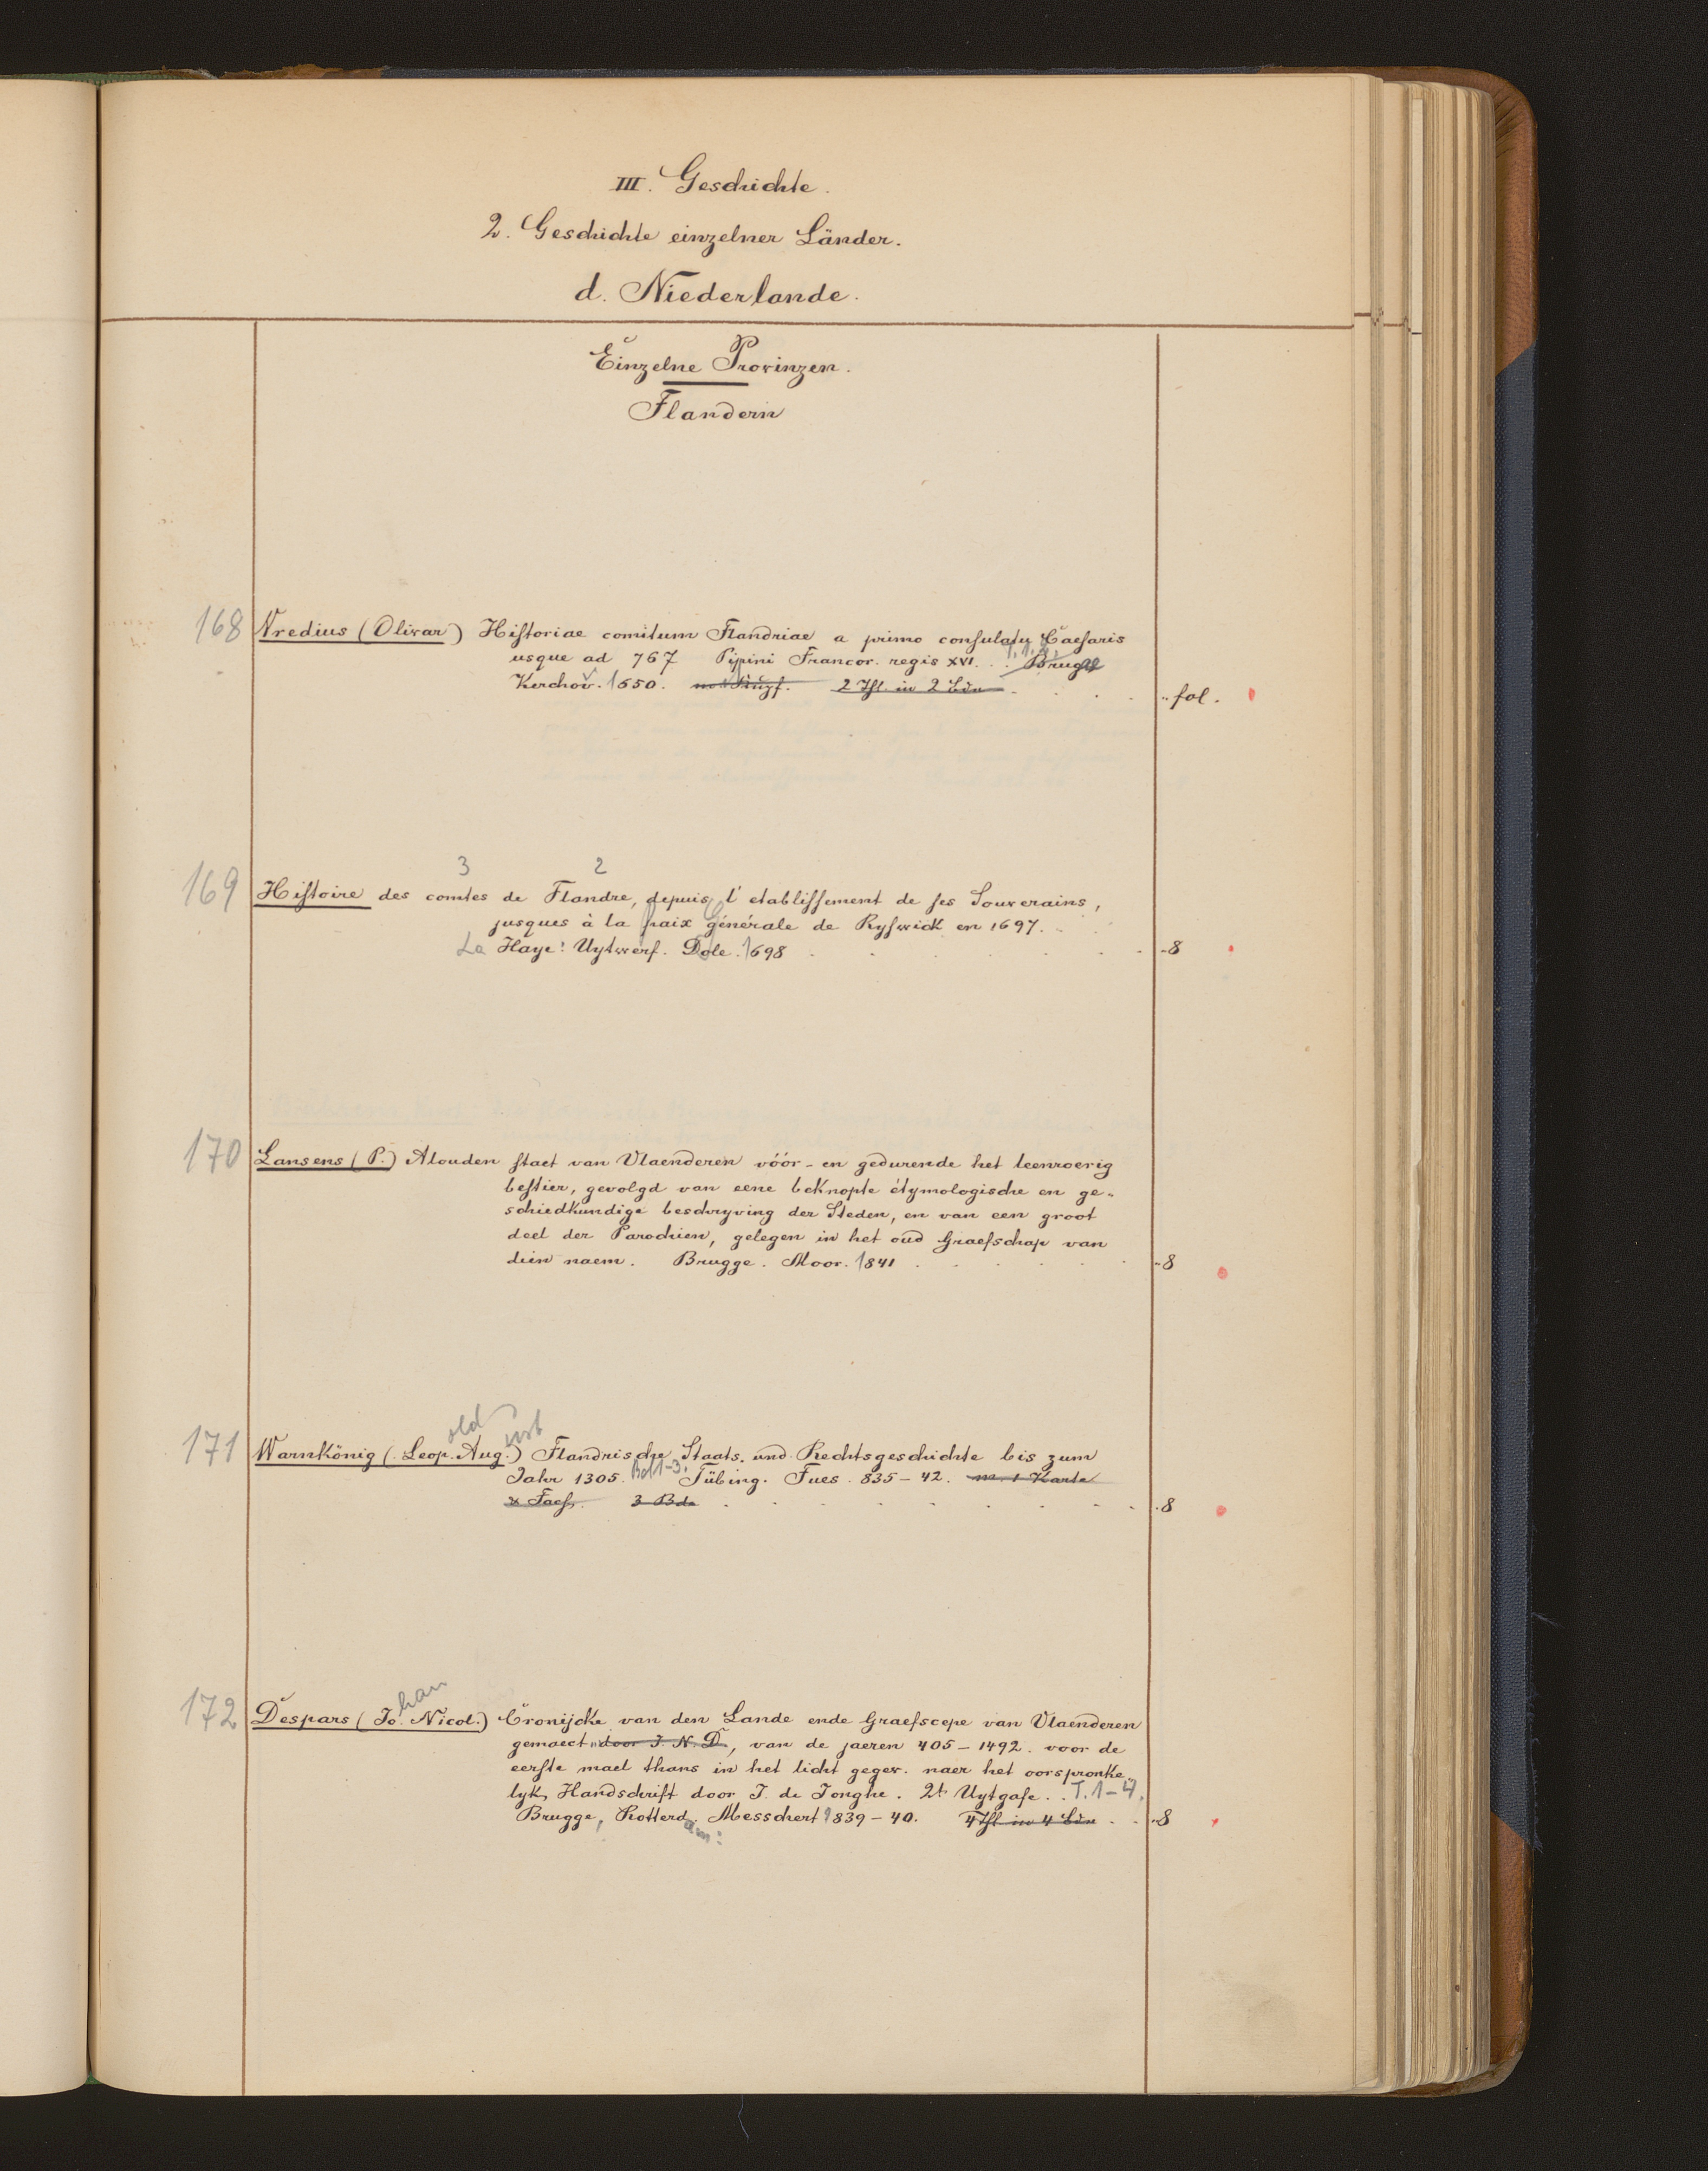 III. Geschichte.
2. Geschichte einzelner Länder.
d. Niederlande.
Einzelne Provinzen.
Flandern
168 Vredius (Olivar) Historiae comitum Flandriae a primo consulatu Caesaris
usque ad 767 Pipini Francor. regis XVI. . . Brugge
Kerchov. 1650. 2 Thl. in 2 Bdn . . . . fol.
3 2
169 Histoire des comtes de Flandre, depuis l'etablissement de ses Souverains,
jusques à la paix générale de Ryswick en 1697.
La Haye: Uytwerf. Dole. 1698 8
170 Lansens (P.) Alouden staet van Vlaenderen vóór- en gedurende het leenroerig
bestier, gevolgd van eene beknopte étymologische en ge-
schiedkundige beschryving der Steden, en van een groot
deel der Parochien, gelegen in het oud Graefschap van
dien naem. Brugge. Moor. 1841 8
old ust
171 Warnkönig (Leop. Aug.) Flandrische Staats- und Rechtsgeschichte bis zum
Jahr 1305. Bd 1-3. Tübing. Fues. 835-42. m. 1 Karte
3 Bde 8
han
172 Despars (Jo. Nicol.) Cronijcke van den Lande ende Graefscepe van Vlaenderen
gemaect door J. N. D., van de jaeren 405-1492. voor de
eerste mael thans in het licht gegev. naer het oorspronke-
lyk Handschrift door J. de Jonghe. 2t Uytgafe. . T. 1-4.
Brugge, Rotterdam: Messchert 1839-40. 4 Thl. in 4 Bdn . . 8